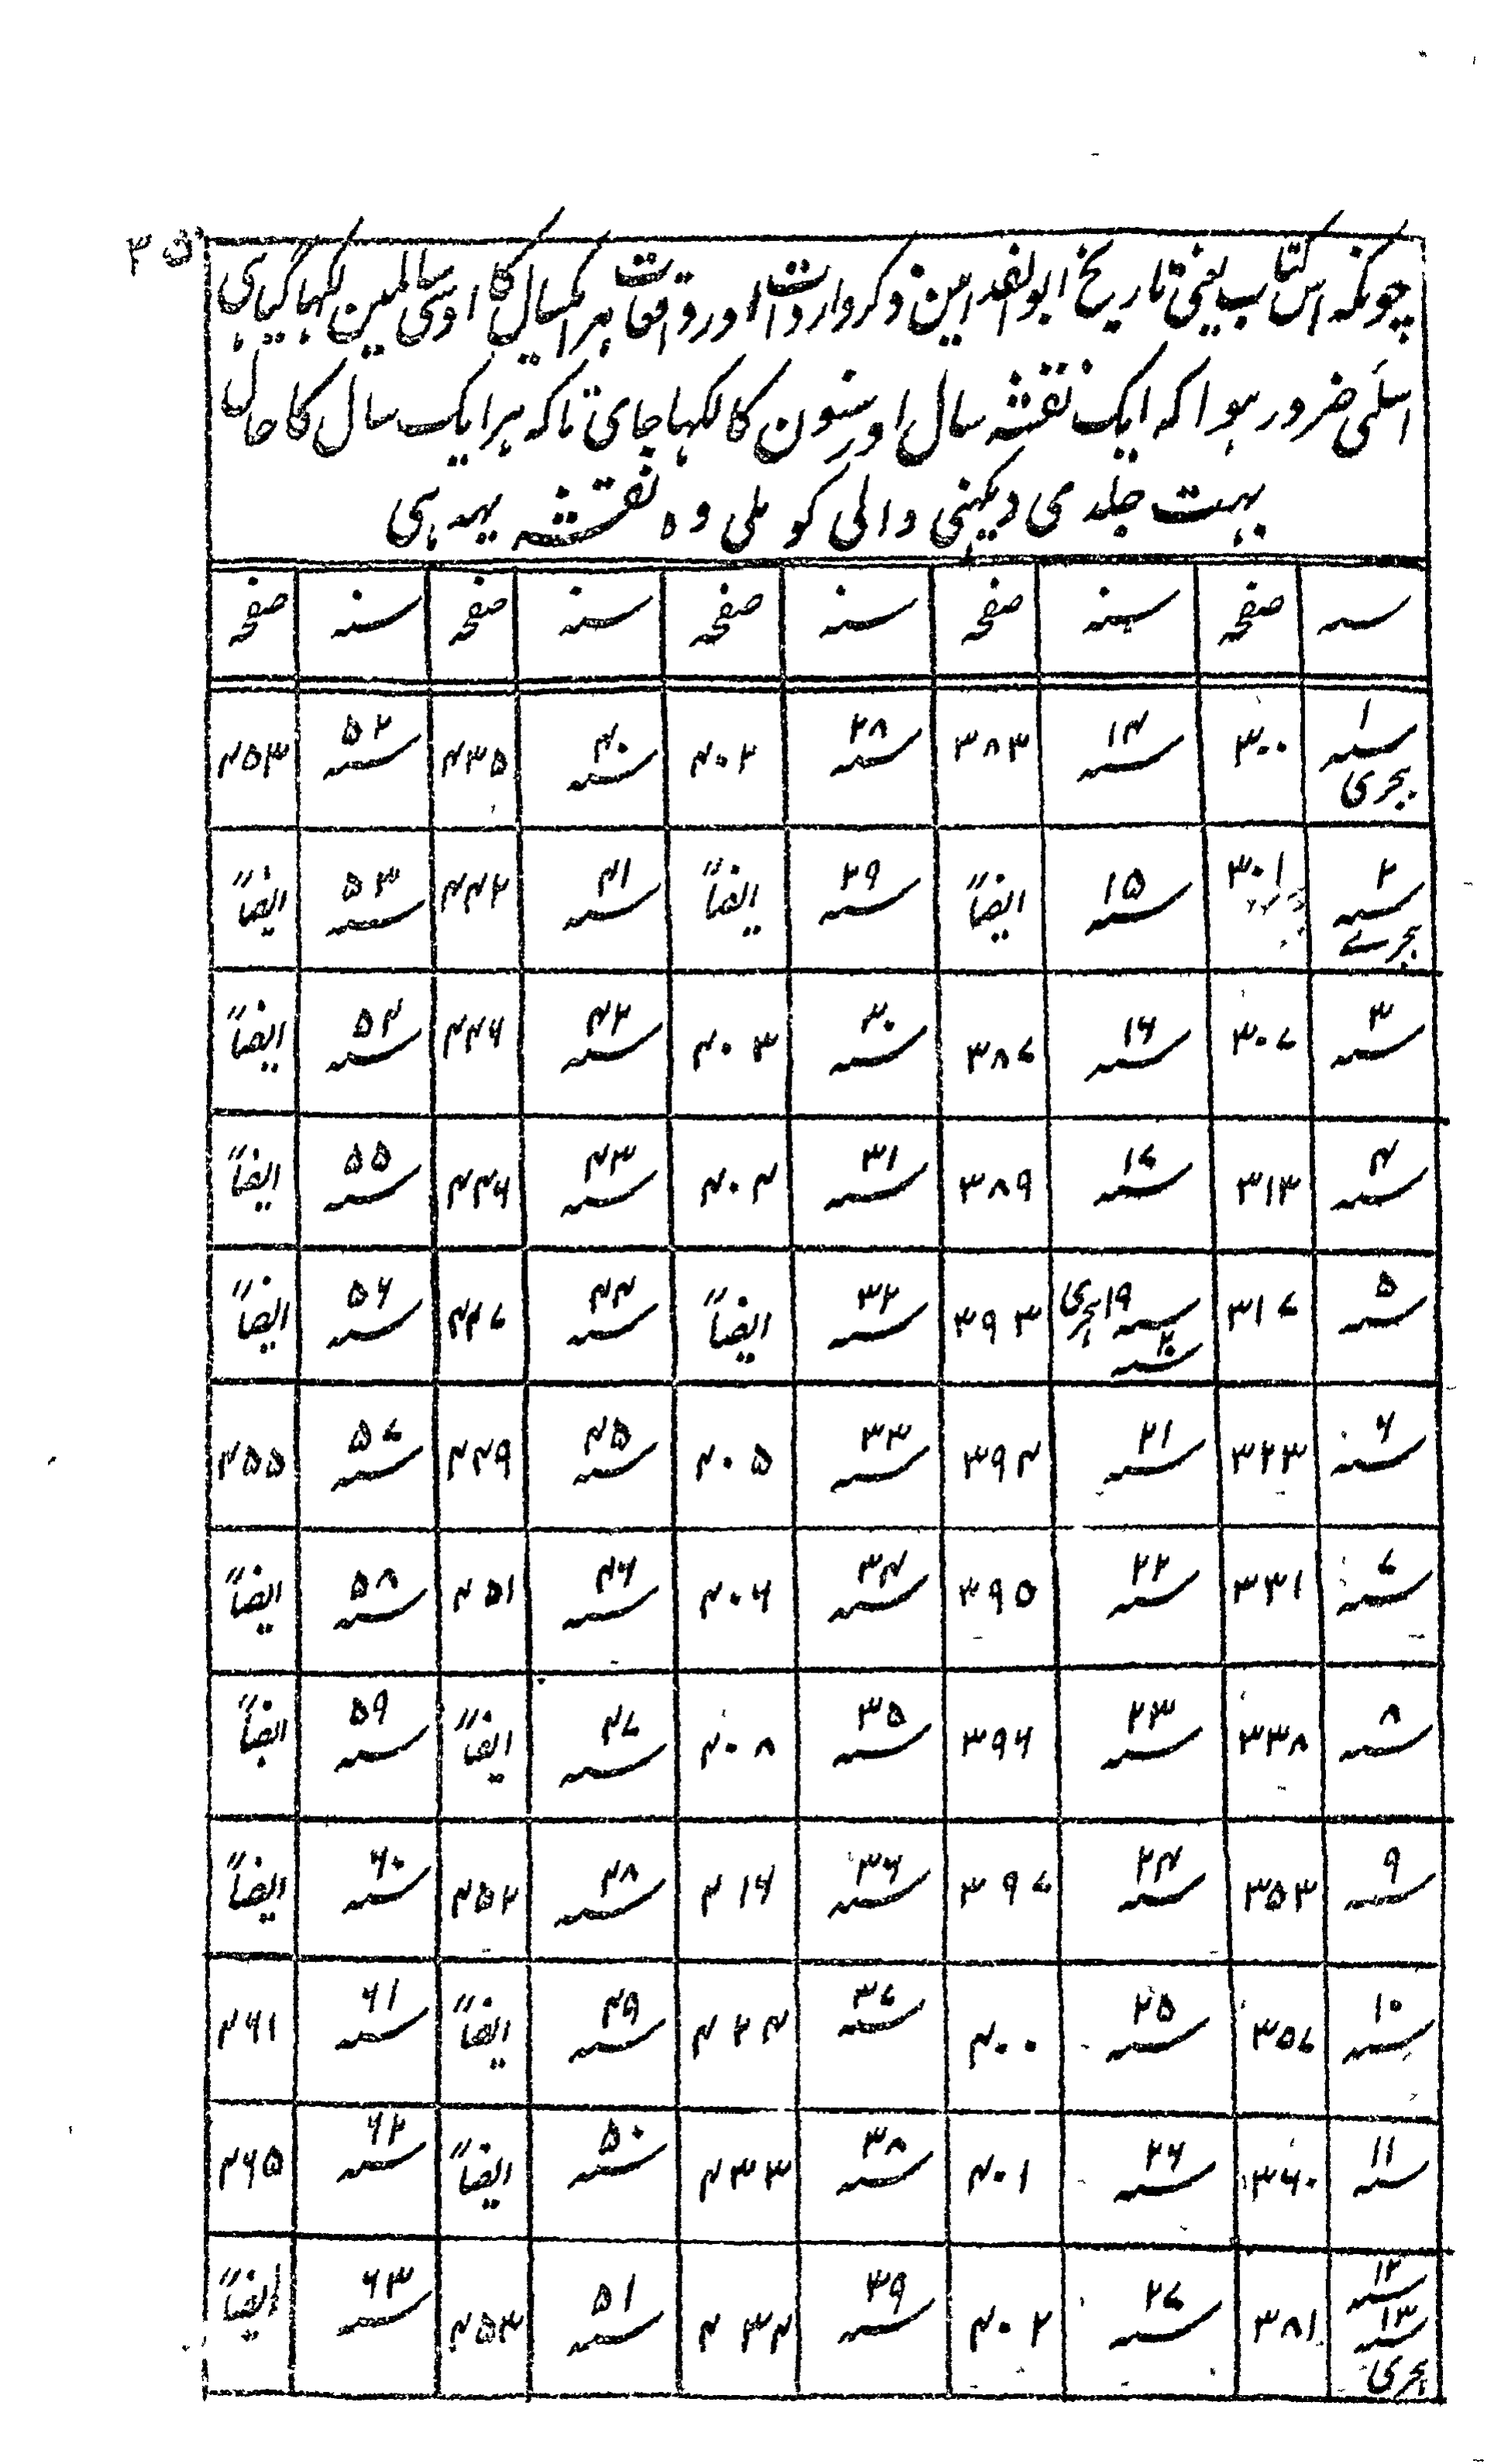 چونکہ اس کتاب یعنی تاریخ ابوالفدا مین ذکر واردات اور وقعات ہر ایکسال کا اوسی سالمین لکہا گیا ہی
اسلٔی ضرور ہوا کہ ایک نقشہ سال اور سنون کا لکہا جای تاکہ ہر ایک سال کا حال
بہت جلدی دیکہنی والی کو ملی وہ نقشہ یہہ ہی
سنہ صفحہ سنہ صفحہ سنہ صفحہ سنہ صفحہ سنہ صفحہ
سنہ ۱ ہجری ۳۰۰ سنہ ۱۴ ۳۸۳ سنہ ۲۸ ۴۰۲ سنہ ۴۰ ۴۳۵ سنہ ۵۲ ۴۵۳
سنہ ۲ ہجرے ۳۰۱ سنہ ۱۵ ایضاً سنہ ۲۹ ایضاً سنہ ۴۱ ۴۴۲ سنہ ۵۳ ایضاً
سنہ ۳ ۳۰۷ سنہ ۱۶ ۳۸۷ سنہ ۳۰ ۴۰۳ سنہ ۴۲ ۴۴۶ سنہ ۵۴ ایضاً
سنہ ۴ ۳۱۳ سنہ ۱۷ ۳۸۹ سنہ ۳۱ ۴۰۴ سنہ ۴۳ ۴۴۶ سنہ ۵۵ ایضاً
سنہ ۵ ۳۱۷ سنہ ۱۹ ہجری سنہ ۲۰ ۳۹۳ سنہ ۳۲ ایضاً سنہ ۴۴ ۴۴۷ سنہ ۵۶ ایضاً
سنہ ۶ ۳۲۳ سنہ ۲۱ ۳۹۴ سنہ ۳۳ ۴۰۵ سنہ ۴۵ ۴۴۹ سنہ ۵۷ ۴۵۵
سنہ ۷ ۳۳۱ سنہ ۲۲ ۳۹۵ سنہ ۳۴ ۴۰۶ سنہ ۴۶ ۴۵۱ سنہ ۵۸ ایضاً
سنہ ۸ ۳۳۸ سنہ ۲۳ ۳۹۶ سنہ ۳۵ ۴۰۸ سنہ ۴۷ ایضاً سنہ ۵۹ ایضاً
سنہ ۹ ۳۵۳ سنہ ۲۴ ۳۹۷ سنہ ۳۶ ۴۱۶ سنہ ۴۸ ۴۵۲ سنہ ۶۰ ایضاً
سنہ ۱۰ ۳۵۷ سنہ ۲۵ ۴۰۰ سنہ ۳۷ ۴۲۴ سنہ ۴۹ ایضاً سنہ ۶۱ ۴۶۱
سنہ ۱۱ ۳۶۰ سنہ ۲۶ ۴۰۱ سنہ ۳۸ ۴۳۳ سنہ ۵۰ ایضاً سنہ ۶۲ ۴۶۵
سنہ ۱۲ سنہ ۱۳ ہجری ۳۸۱ سنہ ۲۷ ۴۰۲ سنہ ۳۹ ۴۳۴ سنہ ۵۱ ۴۵۳ سنہ ۶۳ ایضاً